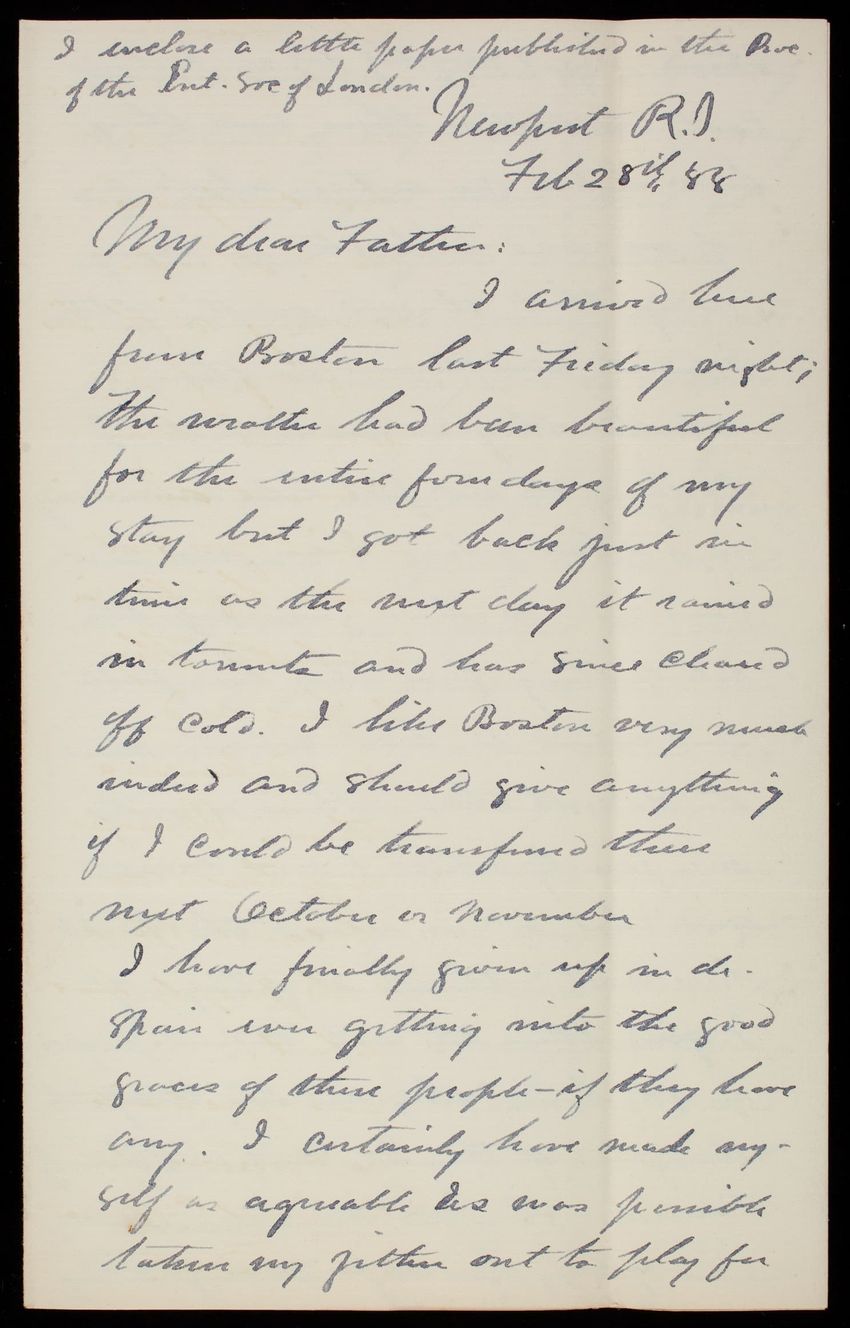 I enclose a little paper published in the Proc.
of the Ent. Soc of London.
Newport R.I.
Feb 28th, 88
My dear Father:
I arrived here
from Boston last Friday night;
the weather had been beautiful
for the entire four days of my
stay but I got back just in
time as the next day it rained
in torrents and has since cleared
off cold. I like Boston very much
indeed and should give anything
if I could be transfered there
next October or November
I have finally given up in de-
spair ever getting into the good
graces of these people—if they have
any. I certainly have made my-
self as agreeable as was possible
taken my zitter out to play for